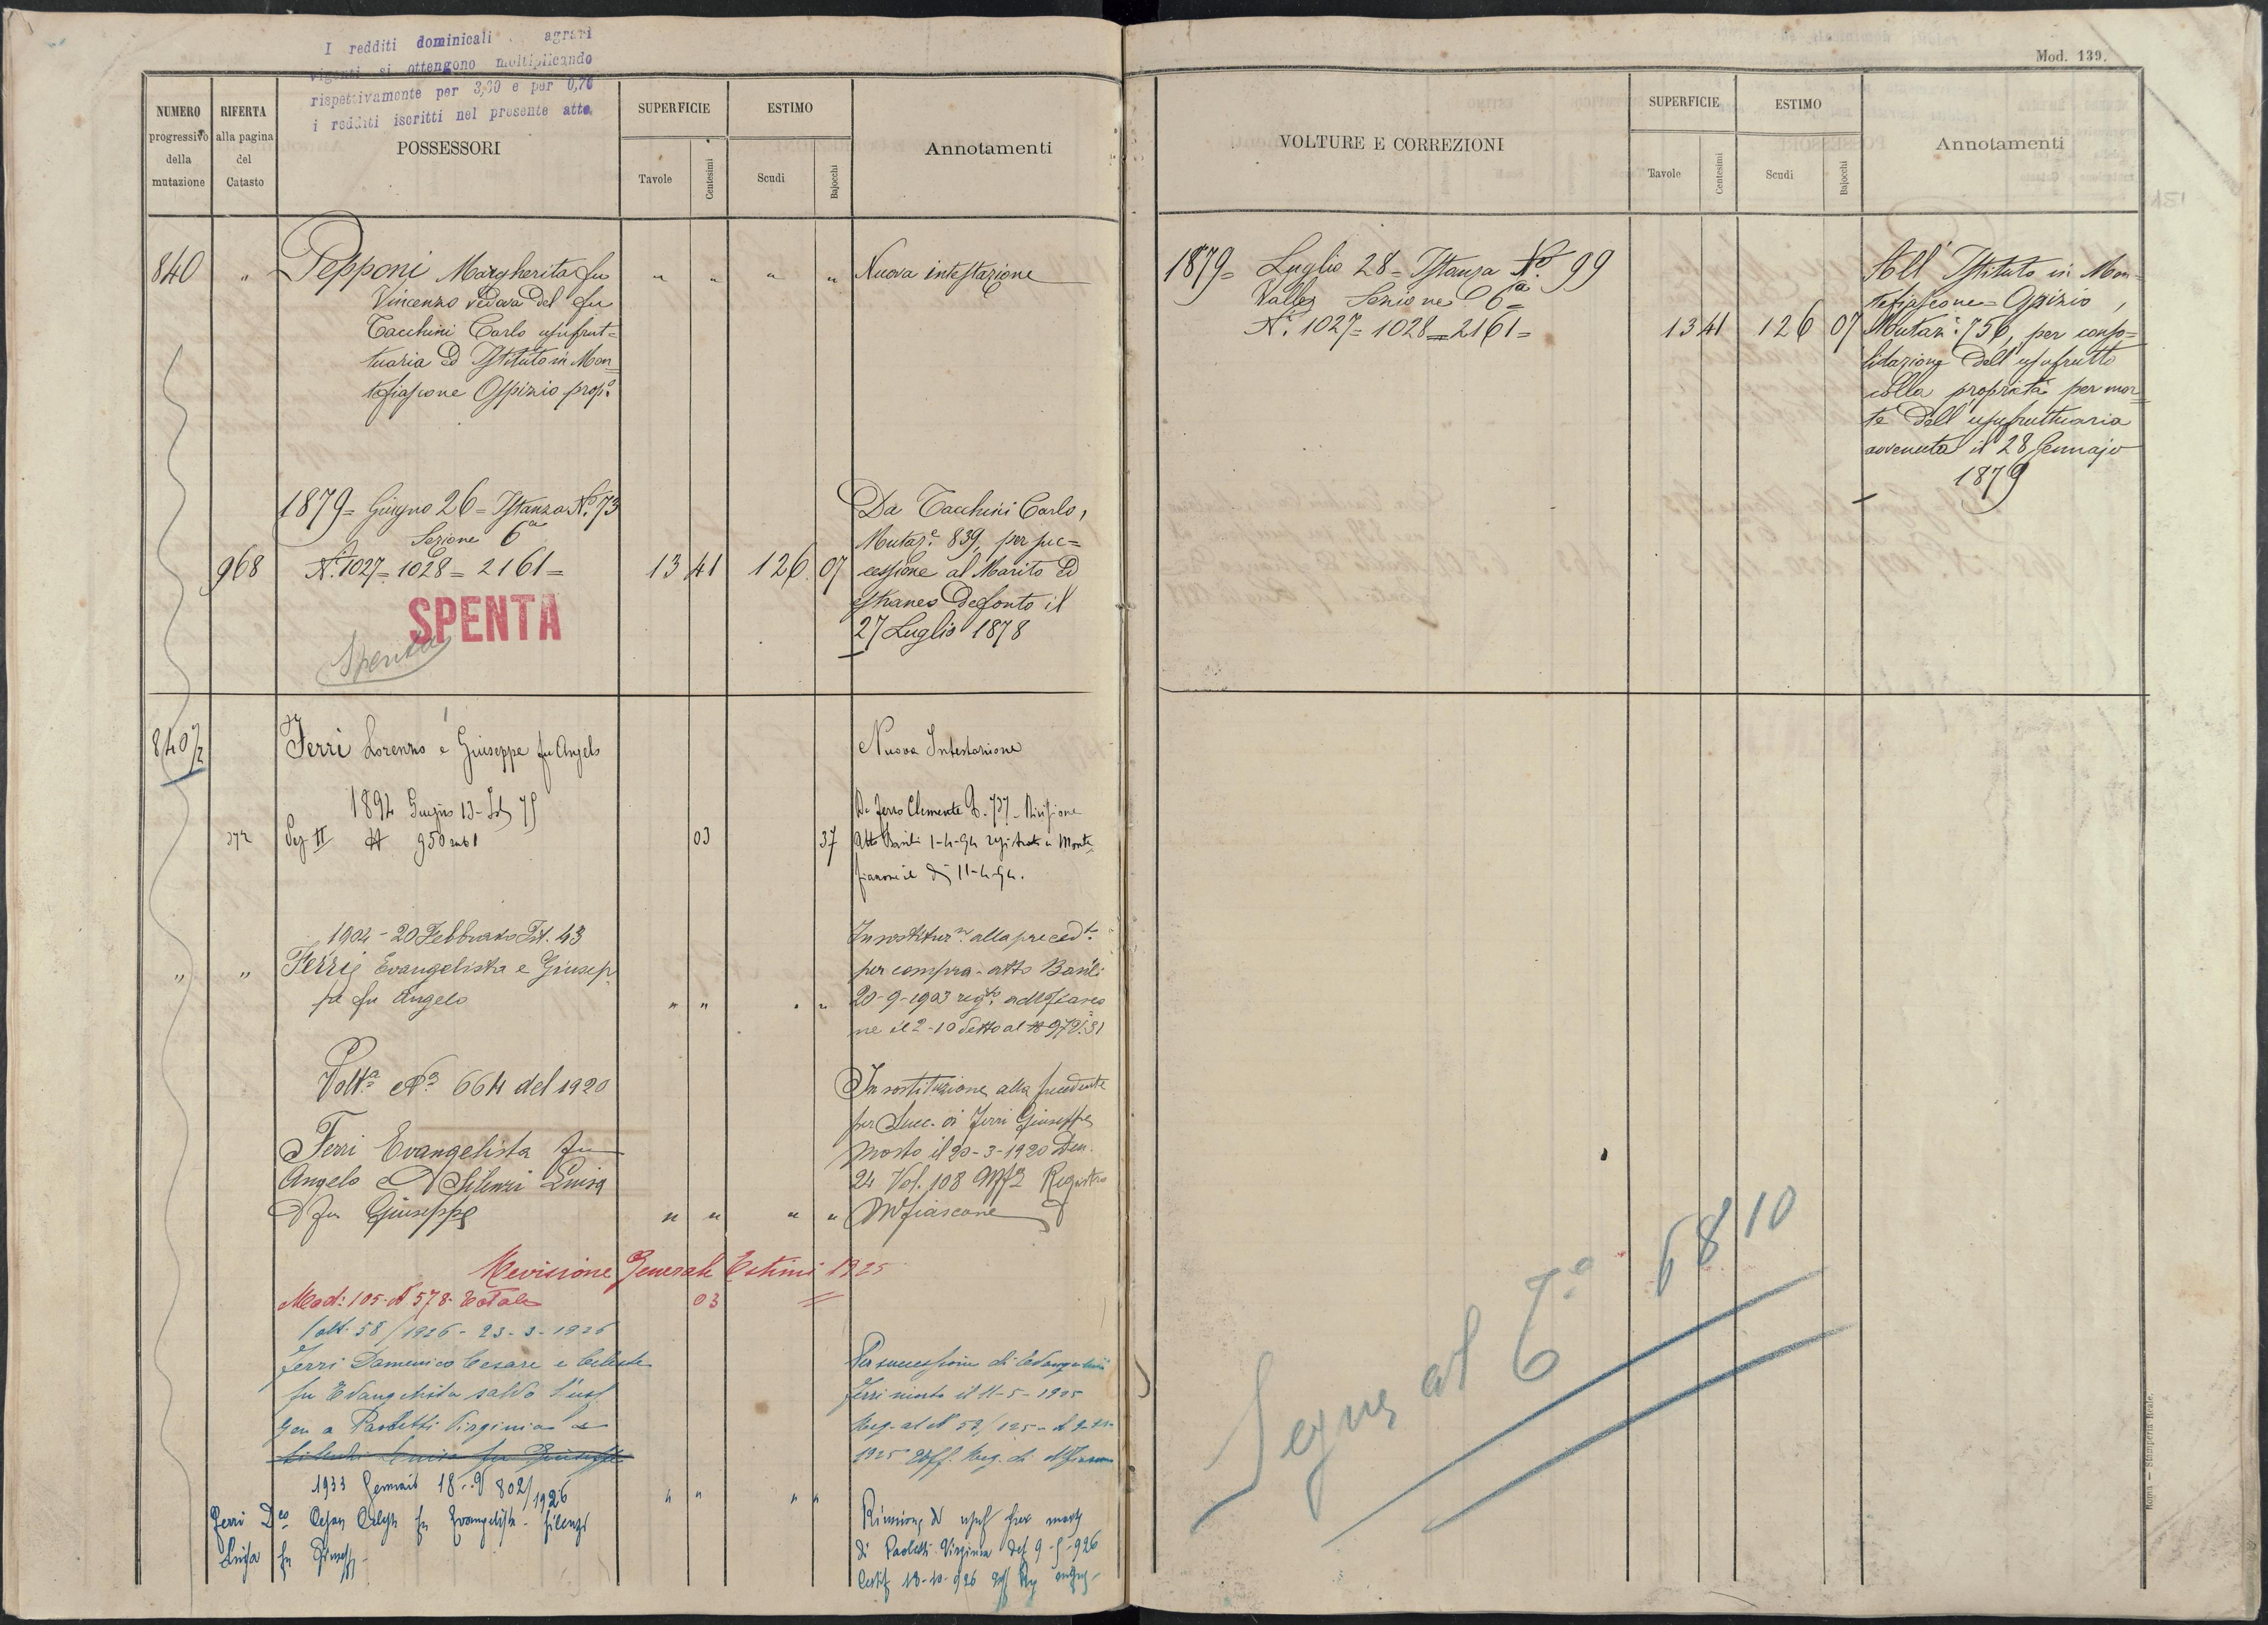 I redditi dominicali agrari
vigenti si ottengono moltiplicando
rispettivamente per 3,30 e per 0,70
i redditi iscritti nel presente atto.
NUMERO
progressivo
della
mutazione
RIFERTA
alla pagina
del
Catasto
POSSESSORI
SUPERFICIE
Tavole
Centesimi
ESTIMO
Scudi
Bajocchi
Annotamenti
840 " Pepponi Margherita fu " " " " Nuova intestazione
Vincenzo vedova del fu
Tacchini Carlo usufrut=
tuaria ed Istituto in Mon
tefiascone Ospizio prop.º
1879= Giugno 26= Istanza Nº 73
Sezione 6ª
968 Nⁱ 1027= 1028= 2161= 13 41 126 07
Da Tacchini Carlo,
Mutazᵉ 839, per suc=
cessione al Marito ed
estraneo defonto il
27 Luglio 1878
SPENTA
Spenta
840/2 Ferri Lorenzo e Giuseppe fu Angelo Nuova Intestazione
1894 Giugno 13 - 75
372 Sez II # 950 sub 1 03 37
Da Ferro Clemente 737 - Divisione
Atto Basili 1-4-94 registrato a Monte
fiascone il dì 11-4-94.
1904 - 20 Febbraio Ist. 43
" " Ferri Evangelista e Giusep
pe fu Angelo " " " "
In sostituzⁿᵉ alla precedᵗᵉ
per compra - atto Basili
20-9-1903 regᵗᵒ a Mfiasco
ne il 2-10 detto al # 97 V. 31
Voltª Nº 664 del 1920
Ferri Evangelista fu
Angelo e Silenzi Luisa
fu Giuseppe " " " "
In sostituzione alla precedente
per Succ. di Ferri Giuseppe
morto il 20-3-1920 Den.
24 Vol. 108 Registro
Mfiascone
Revisione Generale Estimi 1925
Mod: 105. N 578. Totale 03 =
Volt. 58/1926 - 23-3-1926
Ferri Domenico Cesare e Celeste
fu Evangelista salvo l'usf.
gen a Paoletti Virginia e
Silenzi Luisa fu Giuseppe
Per successione di Evangelista
Ferri morto il 11-5-1925
Reg. al N 52/125
1925 Uff. Reg. di Mfiascone
1933 Gennaio 18 - V 802/1926 " " " "
Ferri Dᶜᵒ Cesare Celeste fu Evangelista - Silenzi
Luisa fu Giusep -
Riunione di usuf per morte
di Paoletti Virginia def 9-5-926
Certif 18-10-926 Uff Reg
Mod. 139.
VOLTURE E CORREZIONI
SUPERFICIE
Tavole
Centesimi
ESTIMO
Scudi
Bajocchi
Annotamenti
1879= Luglio 28= Istanza Nº 99
Valle, Sezione 6ª
Nⁱ 1027= 1028= 2161= 13 41 126 07
All' Istituto in Mon=
tefiascone= Ospizio,
Mutazᵉ 756, per conso=
lidazione dell'usufrutto
colla proprietà per mor
te dell'usufruttuaria
avvenuta il 28 Gennajo
1879
Segue al 7º 6810
Roma — Stamperia Reale.